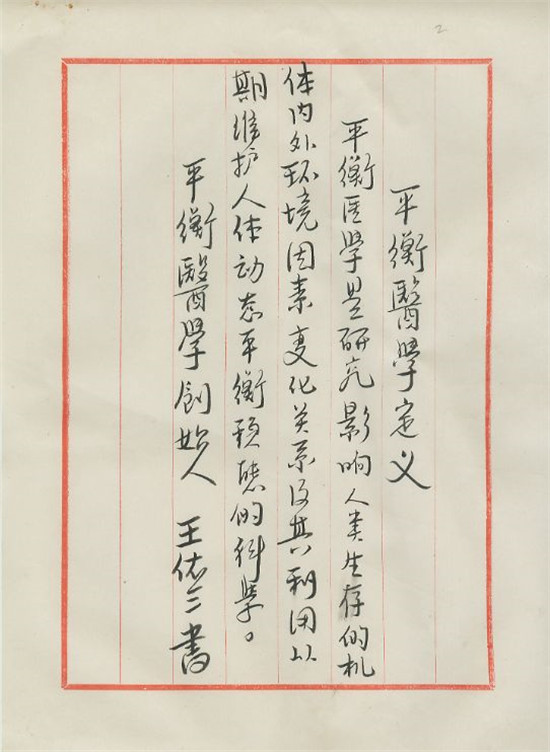 2
平衡醫學定义
平衡医學是研究影响人类生存的机
体内外环境因素变化关系及其利用以
期维护人体动态平衡的科學。
平衡醫學創始人 王佑三書